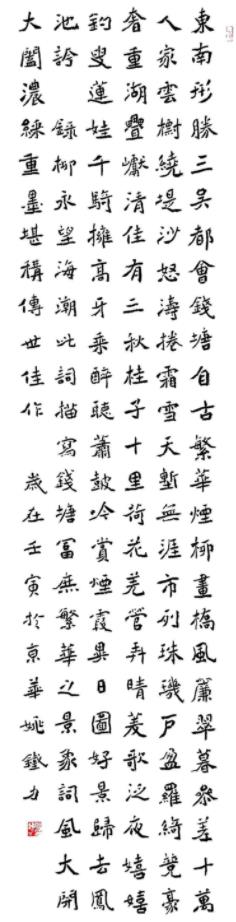 東南形勝三吳都會錢塘自古繁華煙柳畫橋風簾翠幕參差十萬
人家雲樹繞堤沙怒濤捲霜雪天塹無涯市列珠璣戶盈羅綺競豪
奢重湖疊巘清佳有三秋桂子十里荷花羌管弄晴菱歌泛夜嬉嬉
釣叟蓮娃千騎擁高牙乘醉聽蕭鼓吟賞煙霞異日圖好景歸去鳳
池誇 錄柳永望海潮此詞描寫錢塘富庶繁華之景象詞風大開
大闔濃綵重墨堪稱傳世佳作 歲在壬寅於京華姚鐵力